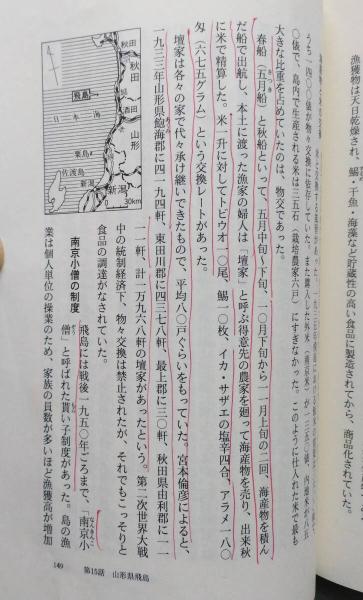 漁獲物は天日乾燥され、鯣・干魚・海藻など貯蔵性の高い食品に製造されてから、商品化されていた。
うち、四〇〇俵が物々交換に依存していた。また購入した外米（南京米）が
〇俵で、島内で生産される米は三五石（栽培農家六戸）にすぎなかった。このように仕入れた米で最も
大きな比重を占めていたのは、物交であった。
春船（五月船）と秋船といって、五月中旬〜下旬、一〇月下旬から一一月上旬の二回、海産物を積ん
だ船で出航し、本土に渡った漁家の婦人は「壇家」と呼ぶ得意先の農家を廻って海産物を売り、出来秋
に米で精算した。米一升に対してトビウオ一〇尾、鯣一〇枚、イカ・サザエの塩辛四合、アラメ一八〇
匁（六七五グラム）という交換レートがあった。
壇家は各々の家で代々承け継いできたもので、平均八〇戸ぐらいをもっていた。宮本倫彦によると、
一九三三年山形県飽海郡に四一九四軒、東田川郡に四三七八軒、最上郡に三〇軒、秋田県由利郡に一一
一一軒、計一万九六八軒の壇家があったという。第二次世界大戦
中の統制経済下、物々交換は禁止されたが、それでもこっそりと
食品の調達がなされていた。
南京小僧の制度
飛島には戦後一九五〇年ごろまで、「南京小
僧」と呼ばれた貰い子制度があった。島の漁
業は個人単位の操業のため、家族の員数が多いほど漁獲高が増加
秋田
秋田
飛島
酒田
山形
日本海
粟島
佐渡島
新潟
0 30km
149 第15話 山形県飛島